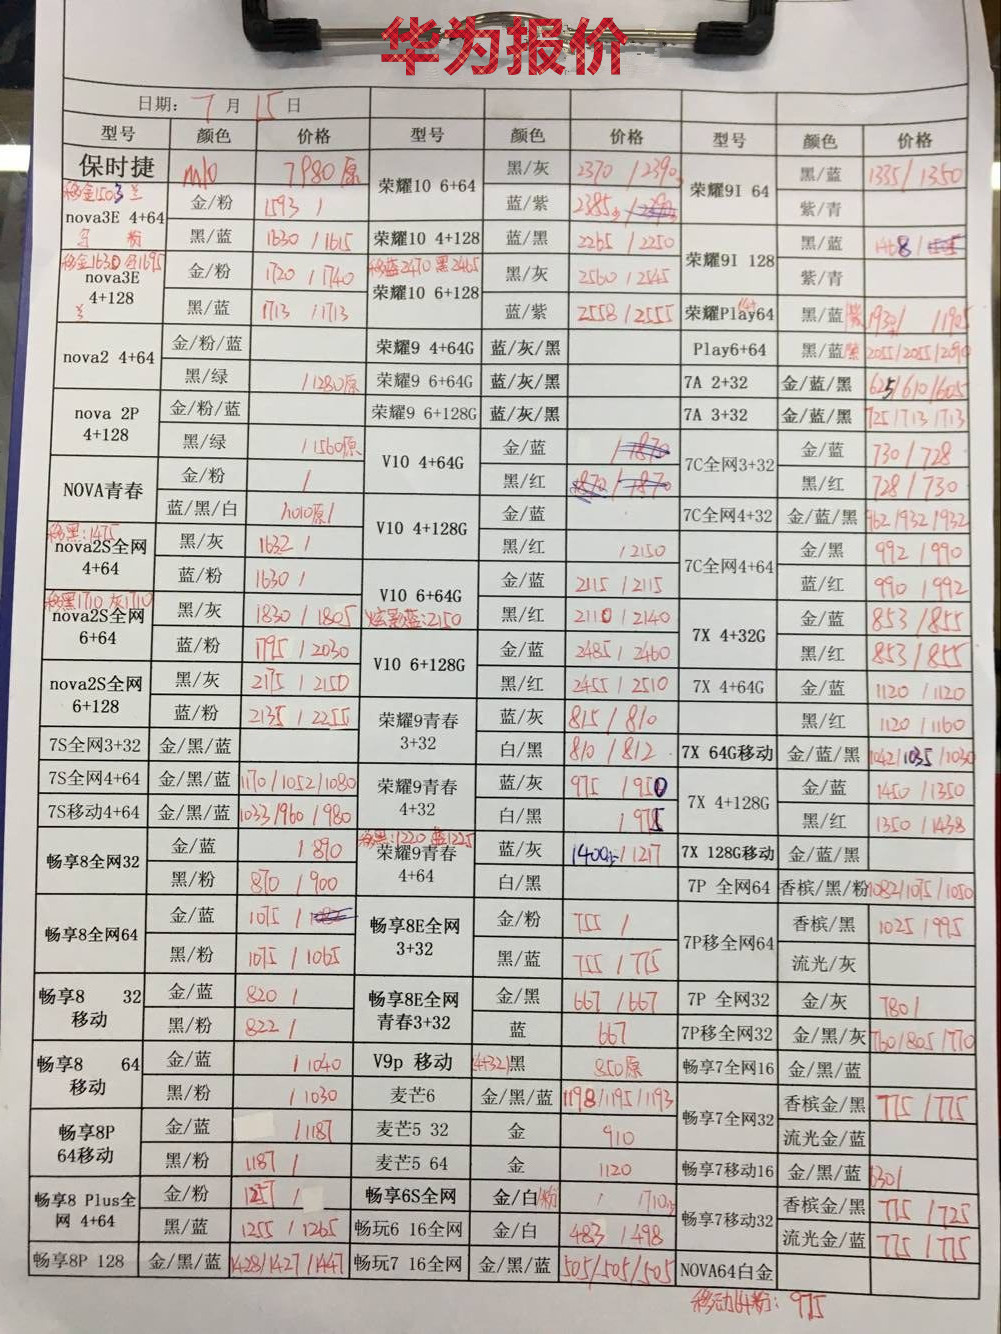 华为报价
日期: 7 月 15 日
型号 颜色 价格 型号 颜色 价格 型号 颜色 价格
保时捷 7980原 荣耀10 6+64 黑/灰 2370 / 2390 荣耀9I 64 黑/蓝 1335/1350
移金1503
nova3E 4+64 金/粉 1593 / 蓝/紫 2385 紫/青
黑/蓝 1630 / 1615 荣耀10 4+128 蓝/黑 2265 / 2250 荣耀9I 128 黑/蓝
移金1630 1695
nova3E 4+128 金/粉 1720 / 1740 移蓝2470 黑2465
荣耀10 6+128 黑/灰 2560 / 2545 紫/青
黑/蓝 1713 / 1713 蓝/紫 2558 / 2555 荣耀Play64 黑/蓝 /1905
nova2 4+64 金/粉/蓝 荣耀9 4+64G 蓝/灰/黑 Play6+64 黑/蓝 2055/2055/2090
黑/绿 /1280原 荣耀9 6+64G 蓝/灰/黑 7A 2+32 金/蓝/黑 625/610/605
nova 2P 4+128 金/粉/蓝 荣耀9 6+128G 蓝/灰/黑 7A 3+32 金/蓝/黑 725/713/713
黑/绿 /1560原 V10 4+64G 金/蓝 / 1870 7C全网3+32 金/蓝 730/728
NOVA青春 金/粉 / 黑/红 1870 / 1870 黑/红 728/730
蓝/黑/白 1010原/ V10 4+128G 金/蓝 7C全网4+32 金/蓝/黑 962/932/932
移黑:1475
nova2S全网 4+64 黑/灰 1632 / 黑/红 / 2150 7C全网4+64 金/黑 992 / 990
蓝/粉 1630 / V10 6+64G 金/蓝 2115 / 2115 蓝/红 990 / 992
移黑1710 灰1710
nova2S全网 6+64 黑/灰 1830 / 1805 炫影蓝:2150 黑/红 2110 / 2140 7X 4+32G 金/蓝 853/855
蓝/粉 1795 / 2030 V10 6+128G 金/蓝 2485 / 2460 黑/红 853/855
nova2S全网 6+128 黑/灰 2175 / 2150 黑/红 2455 / 2510 7X 4+64G 金/蓝 1120 / 1120
蓝/粉 2135 / 2255 荣耀9青春 3+32 蓝/灰 815 / 810 黑/红 1120 / 1160
7S全网3+32 金/黑/蓝 白/黑 810 / 812 7X 64G移动 金/蓝/黑 1042/1035/1030
7S全网4+64 金/黑/蓝 1170/1052/1080 荣耀9青春 4+32 蓝/灰 975 / 950 7X 4+128G 金/蓝 1450 / 1350
7S移动4+64 金/黑/蓝 1033/960/980 白/黑 / 975 黑/红 1350 / 1438
移黑:1220 蓝1225
畅享8全网32 金/蓝 / 890 荣耀9青春 4+64 蓝/灰 1400 / 1217 7X 128G移动 金/蓝/黑
黑/粉 870 / 900 白/黑 7P 全网64 香槟/黑/粉 1082/1075/1050
畅享8全网64 金/蓝 1075 / 畅享8E全网 3+32 金/粉 755 / 7P移全网64 香槟/黑 1025/995
黑/粉 1075 / 1065 黑/蓝 755 / 775 流光/灰
畅享8 32 移动 金/蓝 820 / 畅享8E全网 青春3+32 金/黑 667 / 667 7P 全网32 金/灰 780/
黑/粉 822 / 蓝 667 7P移全网32 金/黑/灰 760/805/770
畅享8 64 移动 金/蓝 / 1040 V9p 移动 (4+32)黑 850原 畅享7全网16 金/黑/蓝
黑/粉 / 1030 麦芒6 金/黑/蓝 1198/1195/1193 畅享7全网32 香槟金/黑 775 / 775
畅享8P 64移动 金/蓝 /1187 麦芒5 32 金 910 流光金/蓝
黑/粉 1187 / 麦芒5 64 金 1120 畅享7移动16 金/黑/蓝 630/
畅享8 Plus全网 4+64 金/粉 / 畅享6S全网 金/白/粉 / 1710 畅享7移动32 香槟金/黑 715 / 725
黑/蓝 1255 / 1265 畅玩6 16全网 金/白 483 / 498 流光金/蓝 715 / 715
畅享8P 128 金/黑/蓝 1428/1427/1447 畅玩7 16全网 金/黑/蓝 505/505/505 NOVA64白金
移动64粉: 975